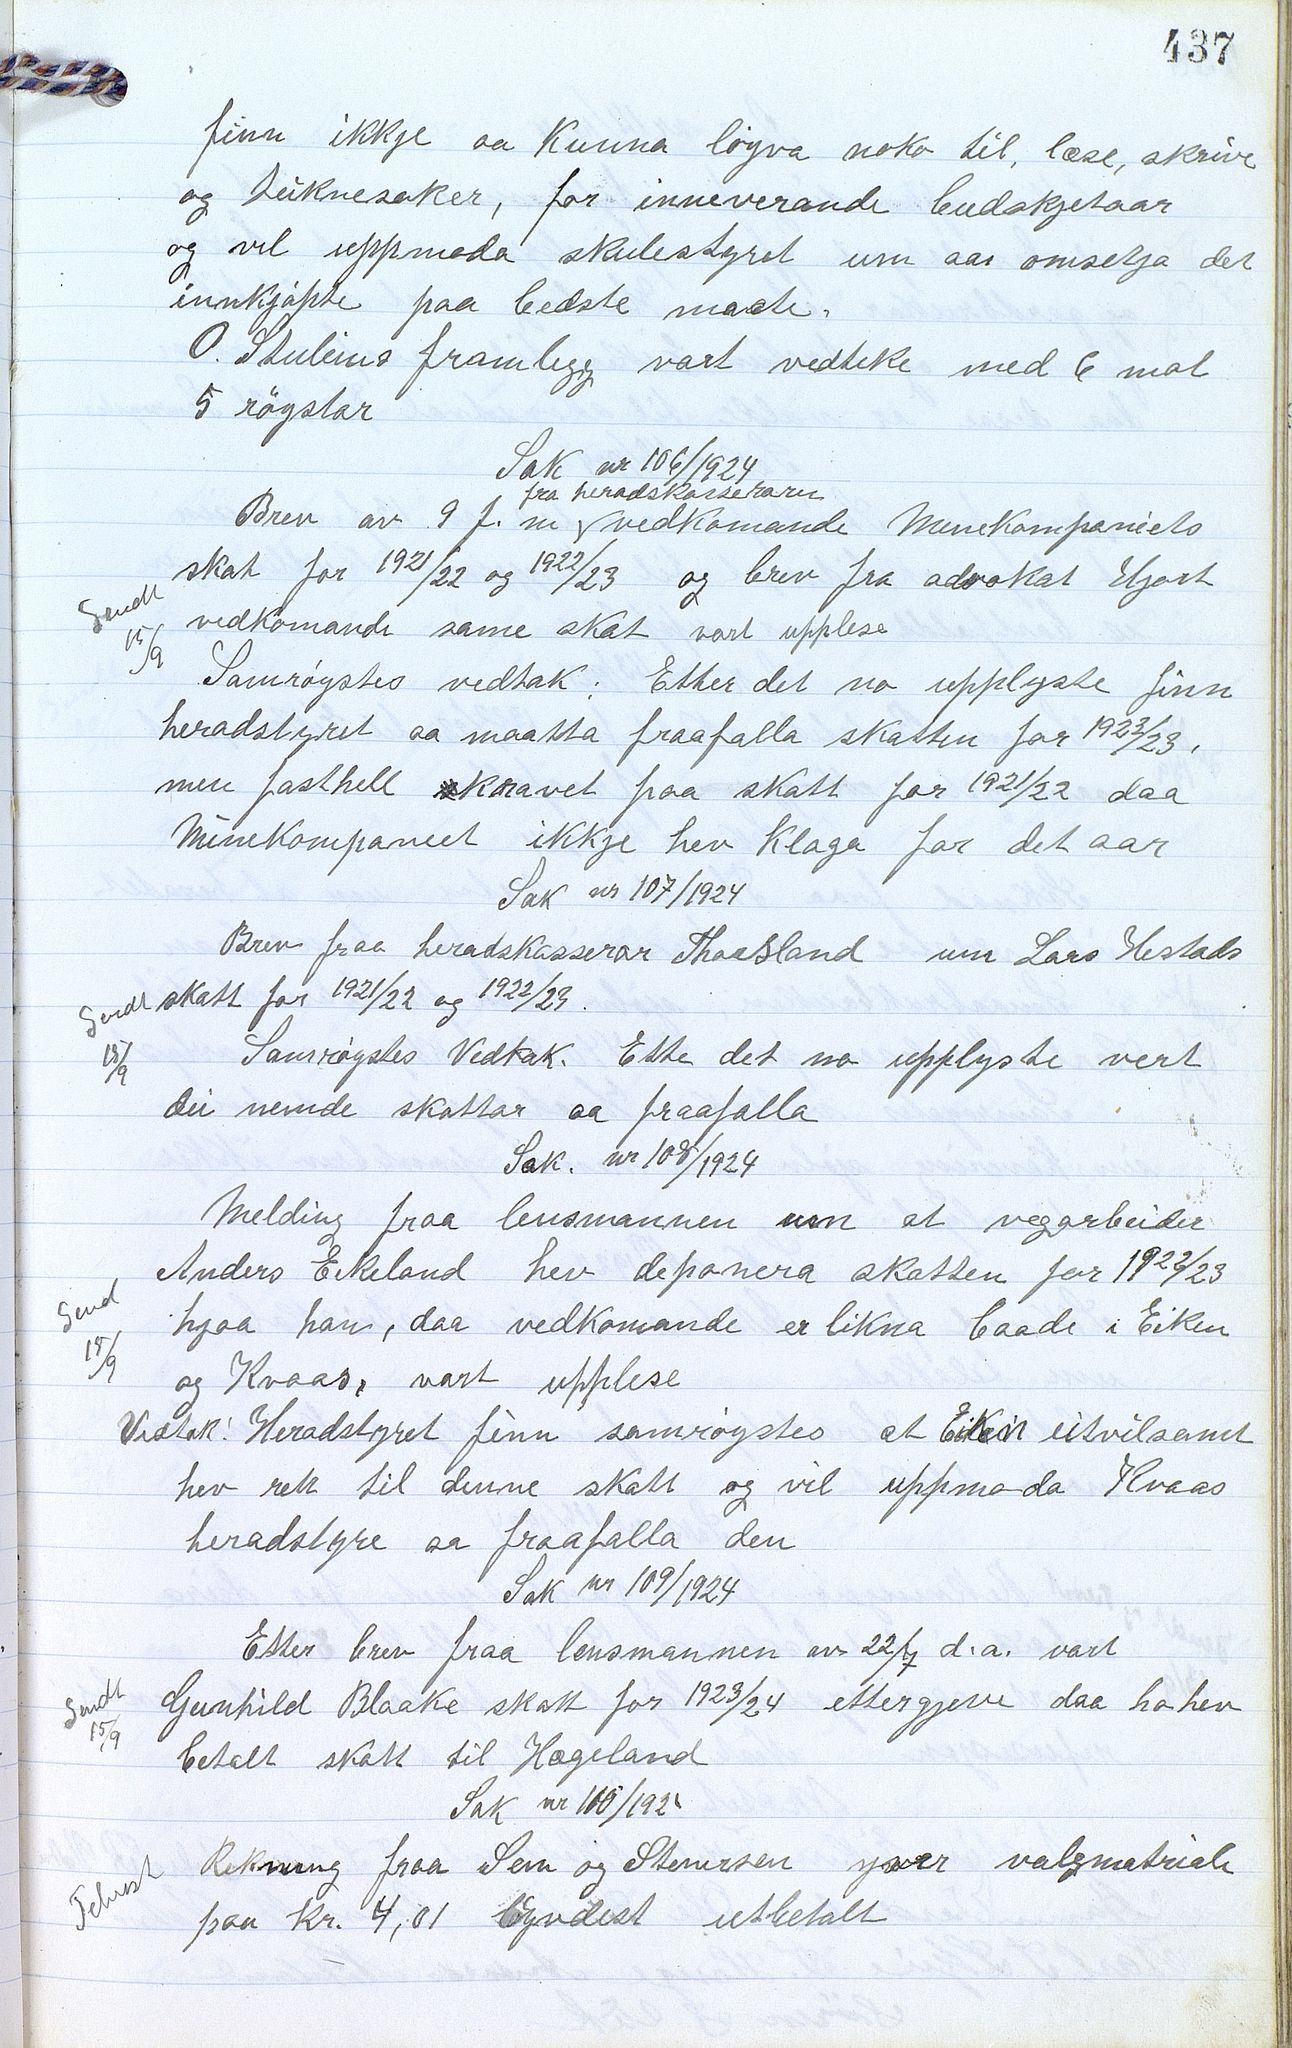 437
finn ikkje aa kunna löyva noko til, læse, skrive
og teiknesaker, for inneverande budskjetaar
og vil uppmoda skulestyret um aa omsetja det
innkjöpte paa bedste maate.
O. Stuleins framlegg vart vedteke med 6 mot
5 röystar
Sak nr 106/1924
fra heradskasseraren
Brev av 9 f. m vedkomande Minekompaniets
skat for 1921/22 og 1922/23 og brev fra advokat Hjort
Sendt
15/9
vedkomande same skat vart upplese
Samröystes vedtak: Etter det no upplyste finn
heradstyret aa maatta fraafalla skatten for 1922/23,
men fasthell kravet paa skatt for 1921/22 daa
Minekompaniet ikkje hev klaga for det aar
Sak nr 107/1924
Brev fraa heradskasserar Thorsland um Lars Hestads
Sendt
15/9
skatt for 1921/22 og 1922/23.
Samröystes Vedtak. Ette det no upplyste vert
dei nemde skattar aa fraafalla
Sak. nr 108/1924
Melding fraa lensmannen um at vegarbeider
Anders Eikeland hev deponera skatten for 1922/23
Send
15/9
hjaa han, daa vedkomande er likna baade i Eiken
og Kvaas, vart upplese
Vedtak: Heradstyret finn samröystes at Eiken utvilsamt
hev rett til denne skatt og vil uppmoda Kvaas
heradstyre aa fraafalla den
Sak nr 109/1924
Etter brev fraa lensmannen av 22/7 d.a. vart
Sendt
15/9
Gunhild Blaake skatt for 1923/24 ettergjeve daa ho hev
betalt skatt til Hægeland
Sak nr 110/192
Rekning fraa Sem og Stenersen yver valgmatriale
paa Kr. 4,01 utbetalt